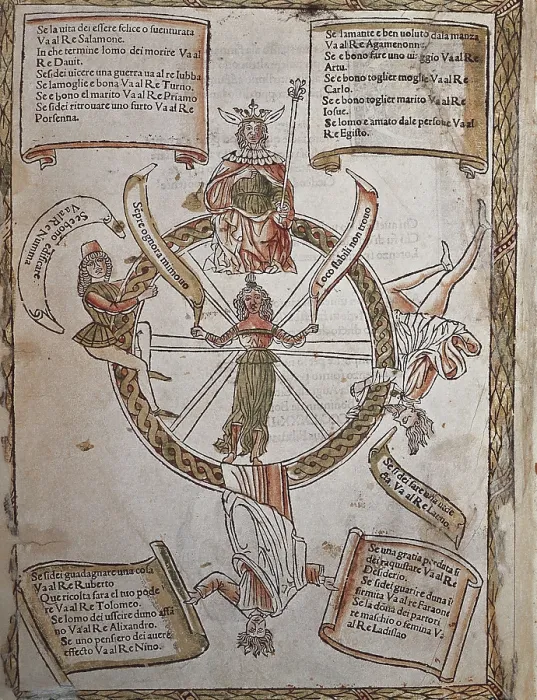 Se la uita dei essere felice o suenturata
Va al Re Salamone.
In che termine lomo dei morire Va al
Re Dauit.
Se si dei uicere una guerra ua al re Iubba
Se la moglie e bona Va al Re Turno.
Se e bono el marito Va al Re Priamo
Se si dei ritrouare uno furto Va al Re
Porsenna.
Se lamante e ben uoluto dala manza
Va al Re Agamenonne.
Se e bono fare uno Va al Re
Artu.
Se e bono toglier moglie Va al Re
Carlo.
Se e bono toglier marito Va al Re
Iosue.
Se lomo e amato dale persone Va al
Re Egisto.
Se e bono edificare
Va al Re Numma
Sepre ognora mi mouo
Loco stabili non trouo
Se si dei fare una
Va al Re Latino.
Se si dei guadagnare una cosa
Va al Re Ruberto
Que ricolta sara el uno pode
re Va al Re Tolomeo.
Se lomo dei usscire duno affa
no Va al Re Alixandro.
Se uno pensiero dei auere
effecto Va al Re Nino.
Se una gratia perduta si
dei raquistare Va al Re
Desiderio.
Se si dei guarire duna i
firmita Va al re Faraone
Se la dona dei partori
re maschio o femina Va
al Re Ladislao